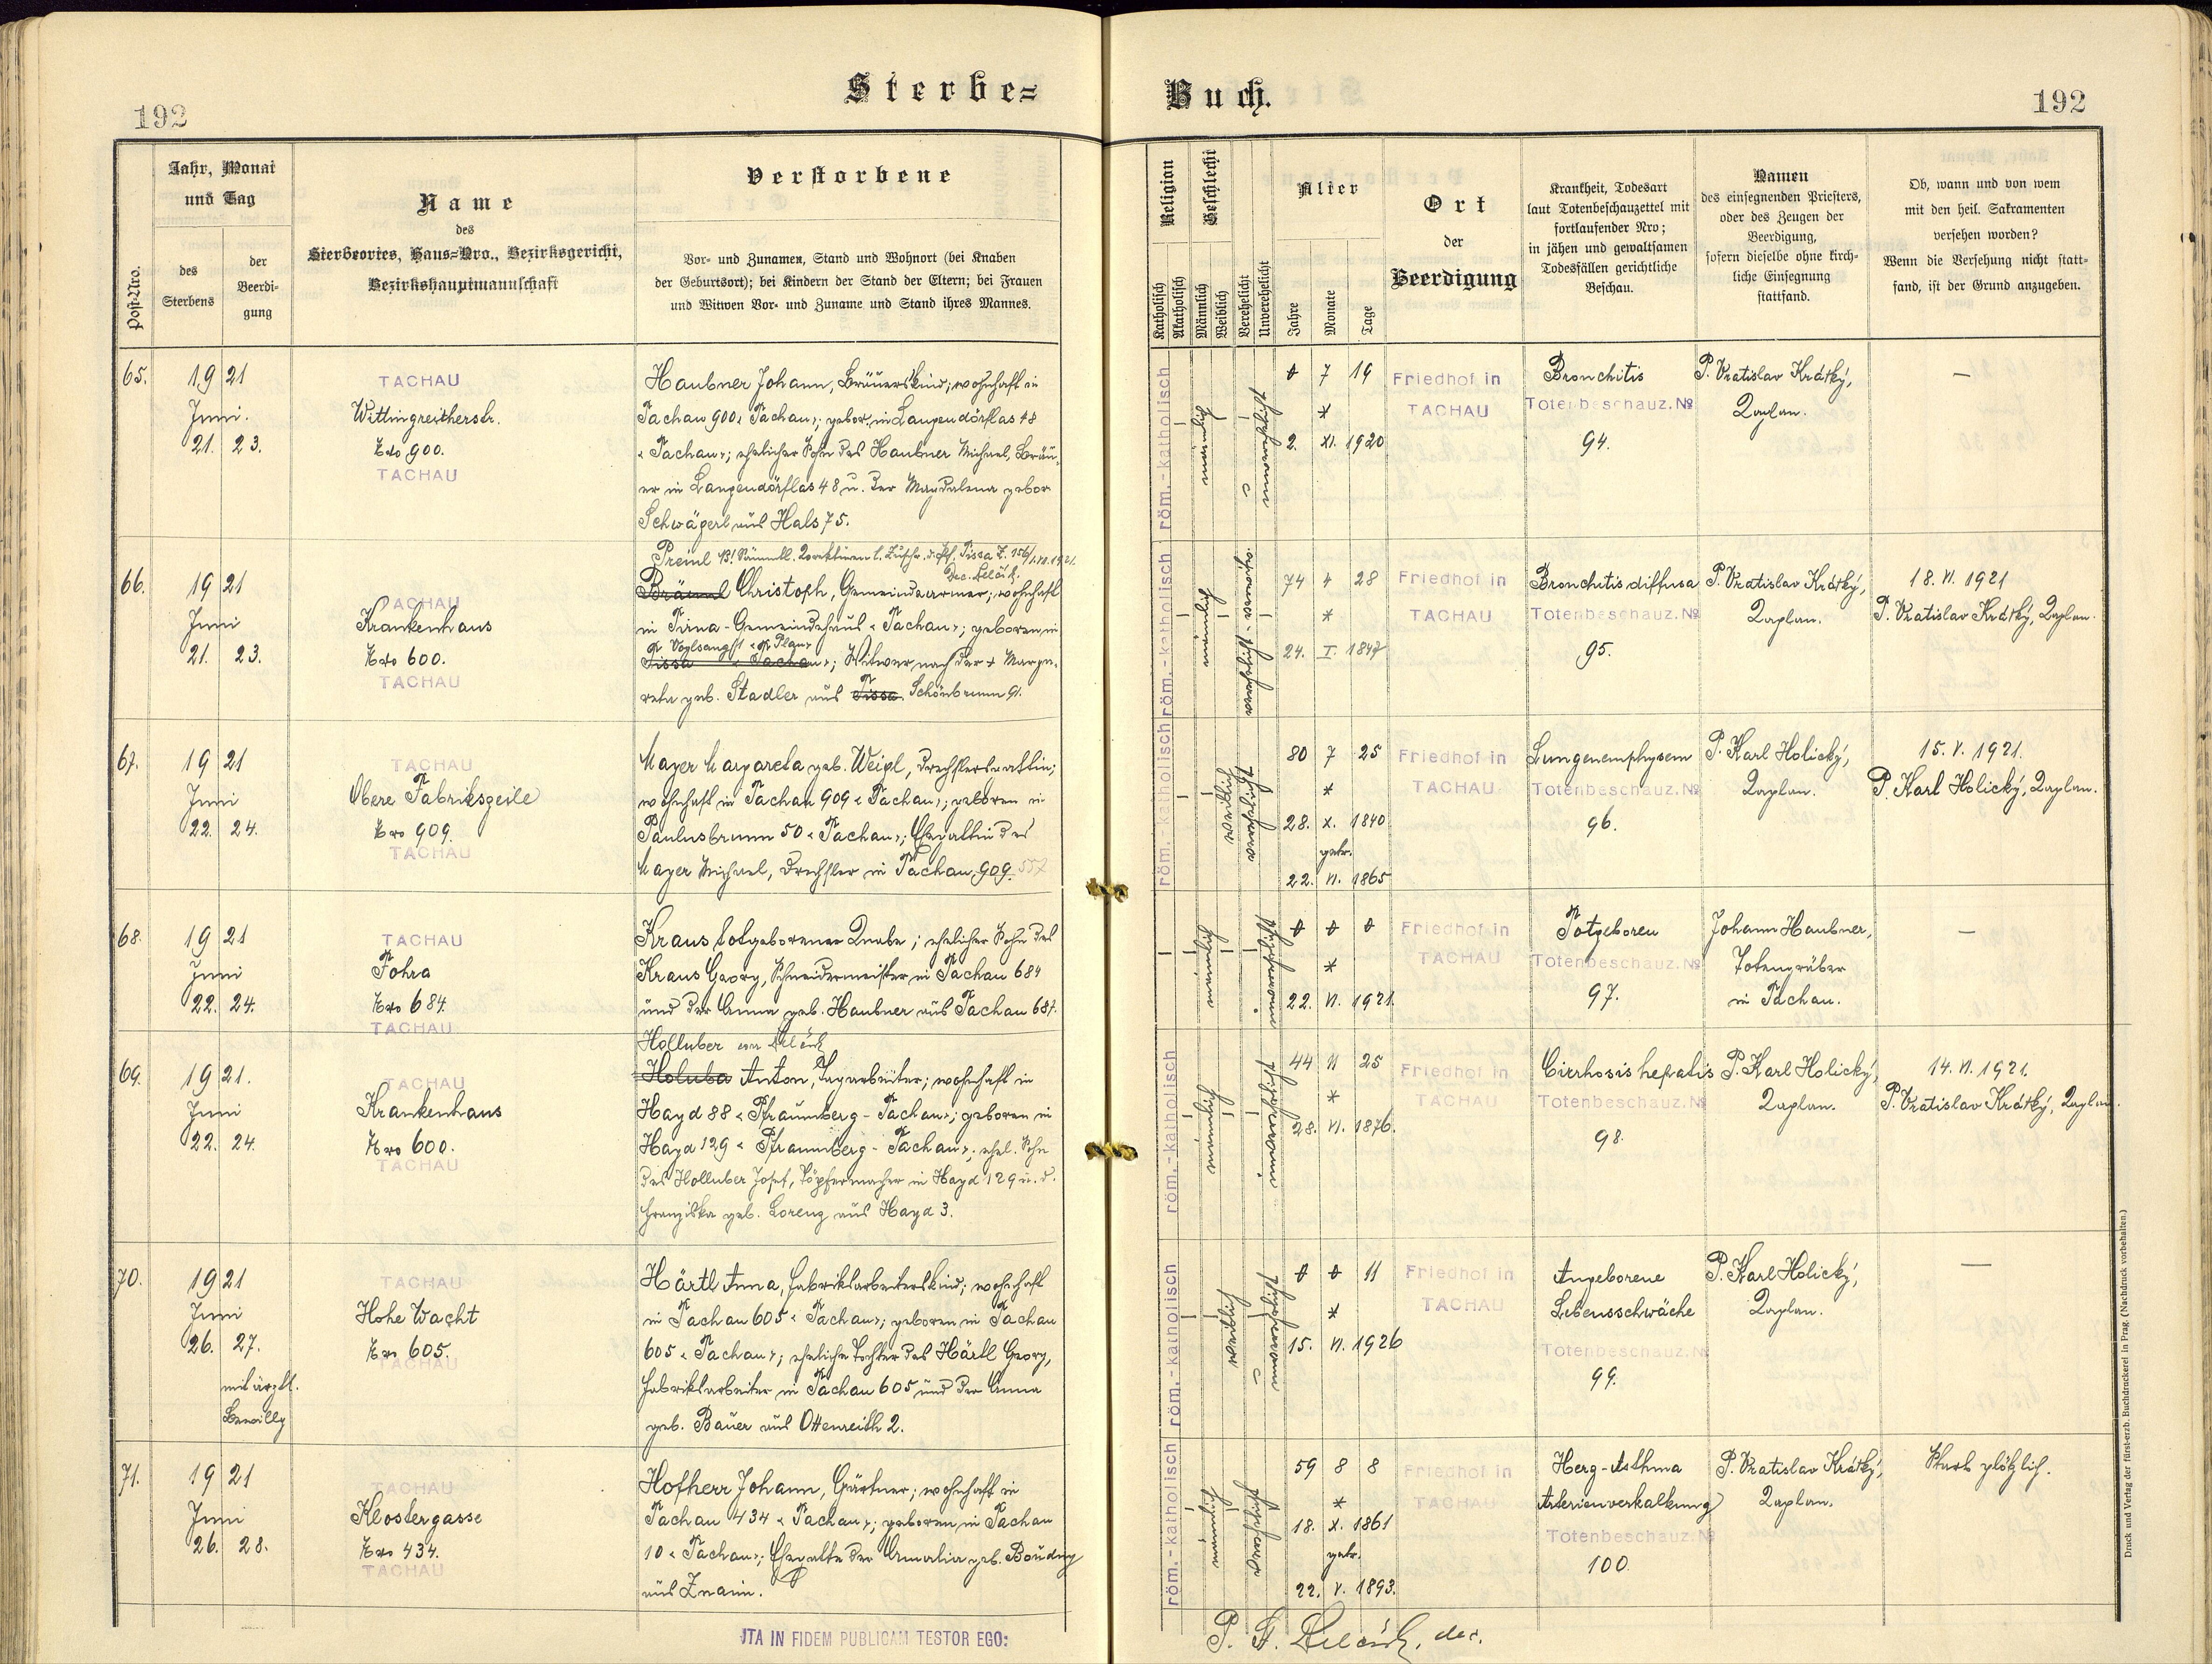 192
Sterbe=
Buch.
192
Post-Nro.
Jahr, Monat
und Tag
des
Sterbens
der
Beerdi-
gung
Name
des
Sterbeortes, Haus=Nro., Bezirksgericht,
Bezirkshauptmannschaft
Verstorbene
Vor- und Zunamen, Stand und Wohnort (bei Knaben
der Geburtsort); bei Kindern der Stand der Eltern; bei Frauen
und Witwen Vor- und Zuname und Stand ihres Mannes.
Religion
Katholisch
Akatholisch
Geschlecht
Männlich
Weiblich
Verehelicht
Unverehelicht
Alter
Jahre
Monate
Tage
Ort
der
Beerdigung
Krankheit, Todesart
laut Totenbeschauzettel mit
fortlaufender Nro;
in jähen und gewaltsamen
Todesfällen gerichtliche
Beschau.
Namen
des einsegnenden Priesters,
oder des Zeugen der
Beerdigung,
sofern dieselbe ohne kirch-
liche Einsegnung
stattfand.
Ob, wann und von wem
mit den heil. Sakramenten
versehen worden?
Wenn die Versehung nicht statt-
fand, ist der Grund anzugeben.
65.
1921
Juni.
21. 23.
TACHAU
Wittingreitherstr.
Nro 900.
TACHAU
Haubner Johann, Bräuerskind; wohnhaft in
Tachau 900 "Tachau"; gebor. in Langendörflas 48
"Tachau"; ehelicher Sohn des Haubner Michael, Bräu-
er in Langendörflas 48 u. der Magdalena gebor
Schwägerl aus Hals 75.
röm.-katholisch
männlich
unverehelicht
0 7 19
*
2. XI. 1920
Friedhof in
TACHAU
Bronchitis
Totenbeschauz. №
94.
P. Vratislav Krátký,
Kaplan.
—
66.
1921
Juni
21. 23.
TACHAU
Krankenhaus
Nro 600.
TACHAU
Preinl
Tissa Z. 156/
Bräunl Christoph, Gemeindearmer; wohnhaft
in Tirna-Gemeindehaus "Tachau"; geboren in
Voglsang "Plan"
Tissa "Tachau"; Witwer nach der + Marga-
reta geb. Stadler aus Tissa Schönbrunn 9.
röm.-katholisch
männlich
74 4 28
*
24. I. 1847
Friedhof in
TACHAU
Bronchitis diffusa
Totenbeschauz. №
95.
P. Vratislav Krátký,
Kaplan.
18. VI. 1921
P. Vratislav Krátký, Kaplan.
67.
1921
Juni
22. 24.
TACHAU
Obere Fabrikszeile
Nro 909.
TACHAU
Mayer Margareta geb. Weigl, Drechslersgattin;
wohnhaft in Tachau 909 "Tachau"; geboren in
Paulusbrunn 50 "Tachau"; Ehegattin des
Mayer Michael, Drechsler in Tachau 909. 557
röm.-katholisch
weiblich
verehelicht
80 7 25
*
28. X. 1840
getr.
22. VI. 1865
Friedhof in
TACHAU
Lungenemphysem
Totenbeschauz. №
96.
P. Karl Holický,
Kaplan.
15. V. 1921.
P. Karl Holický, Kaplan.
68.
1921
Juni
22. 24.
TACHAU
Fohra
Nro 684.
TACHAU
Kraus totgeborener Knabe; ehelicher Sohn des
Kraus Georg, Schneidermeister in Tachau 684
und der Anna geb. Haubner aus Tachau 687.
männlich
unverehelicht
0 0 0
*
22. VI. 1921.
Friedhof in
TACHAU
Totgeboren
Totenbeschauz. №
97.
Johann Haubner,
Totengräber
in Tachau.
—
69.
1921.
Juni
22. 24.
TACHAU
Krankenhaus
Nro 600.
TACHAU
Holluber
Holuba Anton, Tagarbeiter; wohnhaft in
Hayd 88 "Pfraumberg - Tachau"; geboren in
Hayd 129 "Pfraumberg - Tachau"; ehel. Sohn
des Holluber Josef, Töpfermacher in Hayd 129 u. d.
Franziska geb. Lorenz aus Hayd 3.
röm.-katholisch
männlich
unverehelicht
44 11 25
*
28. VI. 1876.
Friedhof in
TACHAU
Cirrhosis hepatis
Totenbeschauz. №
98.
P. Karl Holický,
Kaplan.
14. VI. 1921.
P. Vratislav Krátký, Kaplan.
70.
1921
Juni
26. 27.
mit ärztl.
Bewillg
TACHAU
Hohe Wacht
Nro 605.
TACHAU
Härtl Anna, Fabriksarbeiterskind; wohnhaft
in Tachau 605 "Tachau"; geboren in Tachau
605 "Tachau"; eheliche Tochter des Härtl Georg,
Fabriksarbeiter in Tachau 605 und der Anna
geb. Bauer aus Ottenreith 2.
röm.-katholisch
weiblich
unverehelicht
0 0 11
*
15. VI. 1926
Friedhof in
TACHAU
Angeborene
Lebensschwäche
Totenbeschauz. №
99.
P. Karl Holický,
Kaplan.
—
71.
1921
Juni
26. 28.
TACHAU
Klostergasse
Nro 434.
TACHAU
Hofherr Johann, Gärtner; wohnhaft in
Tachau 434 "Tachau"; geboren in Tachau
10 "Tachau"; Ehegatte der Amalia geb. Boudny
aus Znaim.
röm.-katholisch
männlich
verehelicht
59 8 8
*
18. X. 1861
getr.
22. V. 1893.
Friedhof in
TACHAU
Herz-Asthma
Arterienverkalkung
Totenbeschauz. №
100.
P. Vratislav Krátký,
Kaplan.
Starb plötzlich.
ITA IN FIDEM PUBLICAM TESTOR EGO:
Druck und Verlag der fürst-erzb. Buchdruckerei in Prag. (Nachdruck vorbehalten.)